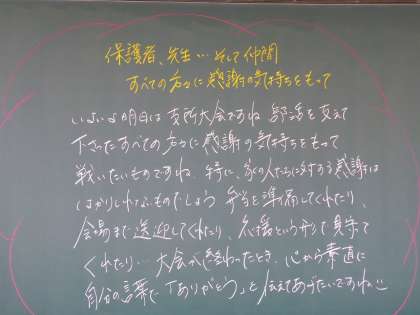 保護者、先生…そして仲間
すべての方々に感謝の気持ちをもって
いよいよ明日は支所大会ですね 部活を支えて
下さったすべての方々に感謝の気持ちをもって
戦いたいものですね。特に、家の人たちに対する感謝は
はかりしれないものでしょう 弁当を準備してくれたり、
会場まで送迎してくれたり、応援という形で見守って
くれたり…大会が終わったとき、心から素直に
自分の言葉で「ありがとう」と伝えてあげたいですね